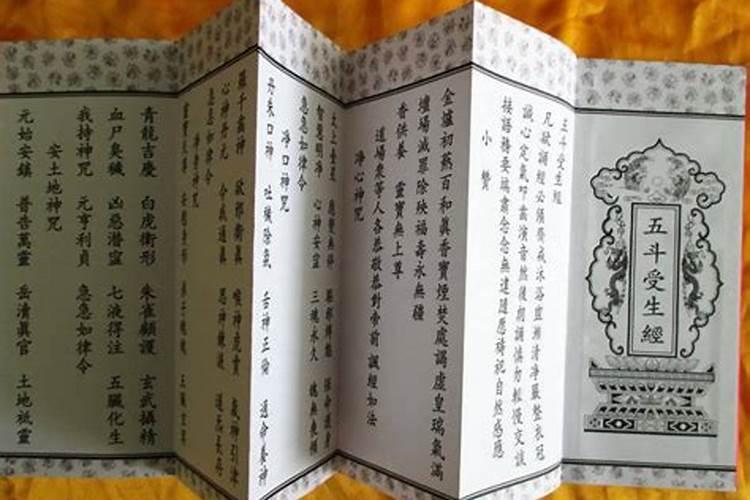 五斗受生經
五斗受生經
凡欲誦經必須齋戒沐浴盥漱清淨嚴整衣冠
誠心定氣叩齒演音然後朗誦慎勿輕慢交談
接語務要端肅念念無違隨愿禱祀自然感應
小 贊
金爐初爇百和真香寶煙焚處謁虛皇瑞氣滿
壇場滅罪除殃福壽永無疆
香供養 靈寶無上尊
道場眾等人各恭敬恭對帝前 諷經如法
淨心神咒
太上臺星 應變無停 驅邪縛魅 保命護身
智慧明淨 心神安寍 三魂永久 魄無喪傾
急急如律令
淨口神咒
丹朱口神 吐穢除氛 舌神正倫 通命養神
羅千齒神 卻邪衛真 喉神虎賁 炁神引津
心神丹元 令我通真 思神鍊液 道炁長存
急急如律令
淨身神咒
靈寶天尊 安慰身形 弟子魂魄 五臟玄冥
青龍吉慶 白虎衛形 朱雀顧護 玄武攝精
血尸臭穢 凶惡潛寍 七液得注 五臟化生
我持神咒 元亨利貞 急急如律令
安土地神咒
元始安鎮 普告萬靈 岳清真官 土地祗靈